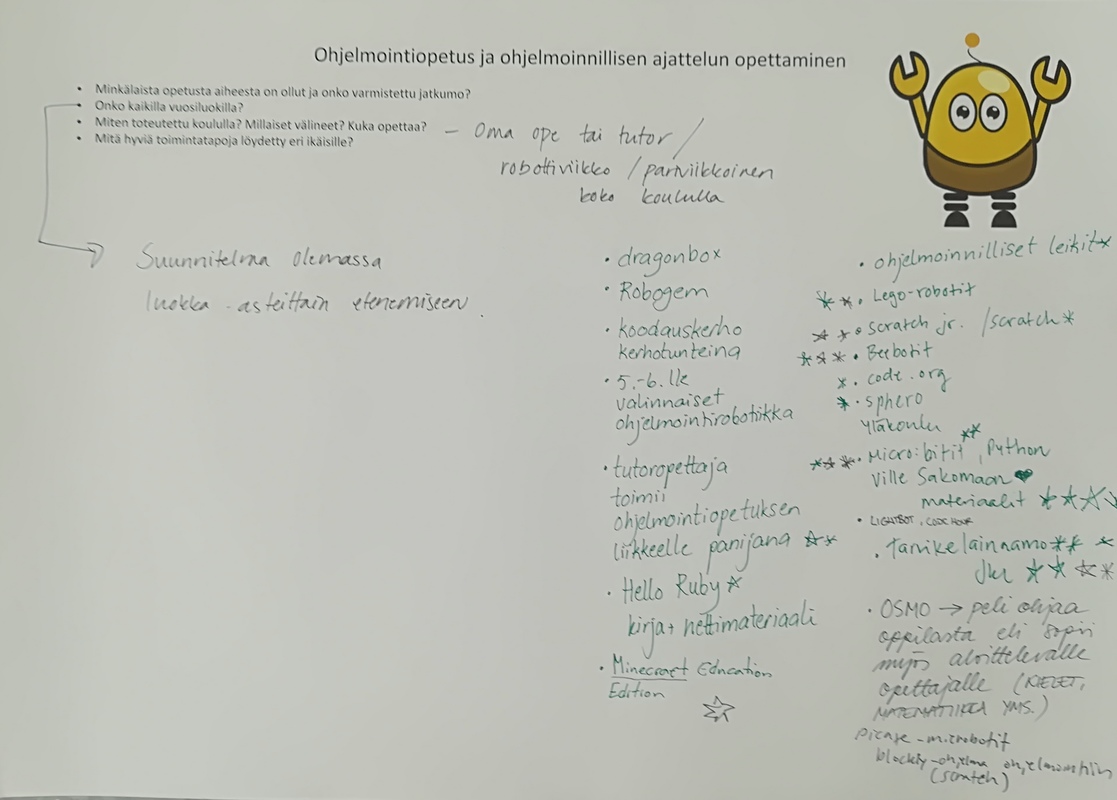 Ohjelmointiopetus ja ohjelmoinnillisen ajattelun opettaminen
• Minkälaista opetusta aiheesta on ollut ja onko varmistettu jatkumo?
• Onko kaikilla vuosiluokilla?
• Miten toteutettu koululla? Millaiset välineet? Kuka opettaa?
• Mitä hyviä toimintatapoja löydetty eri ikäisille?
– Oma ope tai tutor /
robottiviikko / pariviikkoinen
koko koululla
Suunnitelma olemassa
luokka-asteittain etenemiseen.
• dragonbox
• Robogem
• koodauskerho
kerhotunteina
• 5.-6. lk
valinnaiset
ohjelmointirobotiikka
• tutoropettaja
toimii
ohjelmointiopetuksen
liikkeelle panijana ☆*
• Hello Ruby ☆
kirja + nettimateriaali
• Minecraft Education
Edition
☆
• ohjelmoinnilliset leikit*
** • Lego-robotit
☆* • Scratch jr. / scratch *
*** • Beebotit
* • code.org
* • sphero
Yläkoulu
*** • Micro:bitit **, Python
Ville Sakomaan ♥
materiaalit ****
• LIGHTBOT, CODE HOUR
• Tarvikelainaamo ** *
****
• OSMO → peli ohjaa
oppilasta eli sopii
myös aloittelevalle
opettajalle (KIELET,
MATEMATIIKKA YMS.)
-microbotit
blockly-ohjelma ohjelmointiin
(scratch)